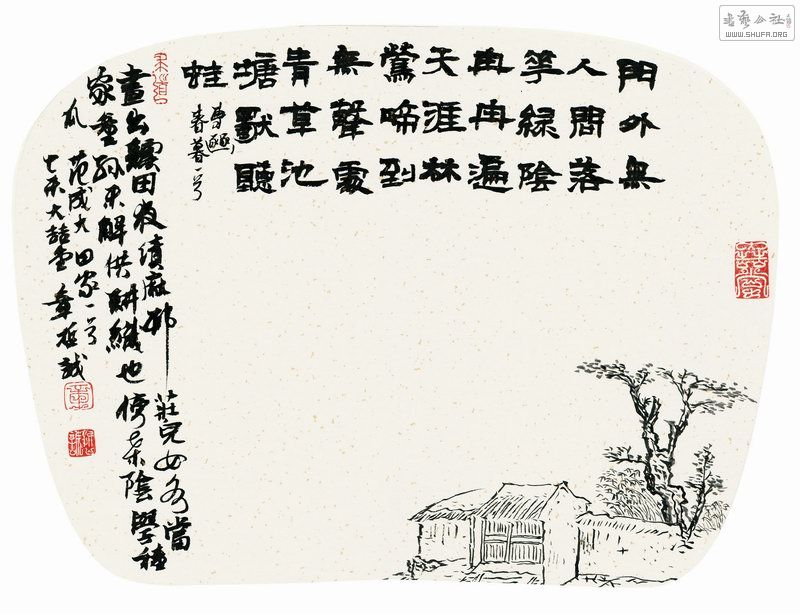 門外無
人問落
花綠陰
冉冉遍
天涯林
鶯啼到
無聲處
青草池
塘獨聽
蛙
曹豳
春暮一首
晝出耘田夜績麻邨莊兒女各當
家童孫未解供耕織也傍桑陰學種
瓜 范成大田家一首
乙未大喆堂章哲誠
書藝公社
WWW.SHUFA.ORG